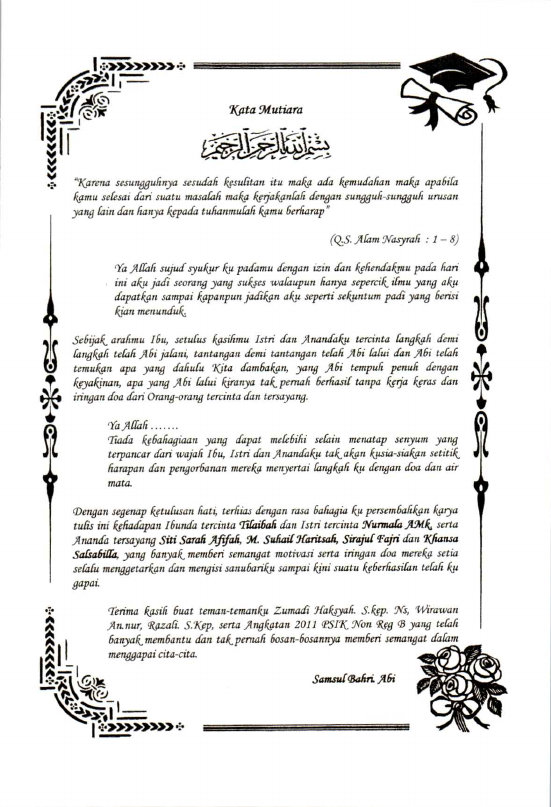 Kata Mutiara
بِسْمِ اللَّهِ الرَّحْمَٰنِ الرَّحِيمِ
"Karena sesungguhnya sesudah kesulitan itu maka ada kemudahan maka apabila
kamu selesai dari suatu masalah maka kerjakanlah dengan sungguh-sungguh urusan
yang lain dan hanya kepada tuhanmulah kamu berharap"
(Q.S. Alam Nasyrah : 1 – 8)
Ya Allah sujud syukur ku padamu dengan izin dan kehendakmu pada hari
ini aku jadi seorang yang sukses walaupun hanya sepercik ilmu yang aku
dapatkan sampai kapanpun jadikan aku seperti sekuntum padi yang berisi
kian menunduk.
Sebijak arahmu Ibu, setulus kasihmu Istri dan Anandaku tercinta langkah demi
langkah telah Abi jalani, tantangan demi tantangan telah Abi lalui dan Abi telah
temukan apa yang dahulu Kita dambakan, yang Abi tempuh penuh dengan
keyakinan, apa yang Abi lalui kiranya tak pernah berhasil tanpa kerja keras dan
iringan doa dari Orang-orang tercinta dan tersayang.
Ya Allah .......
Tiada kebahagiaan yang dapat melebihi selain menatap senyum yang
terpancar dari wajah Ibu, Istri dan Anandaku tak akan kusia-siakan setitik
harapan dan pengorbanan mereka menyertai langkah ku dengan doa dan air
mata.
Dengan segenap ketulusan hati, terhias dengan rasa bahagia ku persembahkan karya
tulis ini kehadapan Ibunda tercinta Tilaibah dan Istri tercinta Nurmala AMk, serta
Ananda tersayang Siti Sarah Afifah, M. Suhail Haritsah, Sirajul Fajri dan Khansa
Salsabilla, yang banyak memberi semangat motivasi serta iringan doa mereka setia
selalu menggetarkan dan mengisi sanubariku sampai kini suatu keberhasilan telah ku
gapai.
Terima kasih buat teman-temanku Zumadi Haksyah. S.kep. Ns, Wirawan
An.nur, Razali. S.Kep, serta Angkatan 2011 PSIK Non Reg B yang telah
banyak membantu dan tak pernah bosan-bosannya memberi semangat dalam
menggapai cita-cita.
Samsul Bahri. Abi